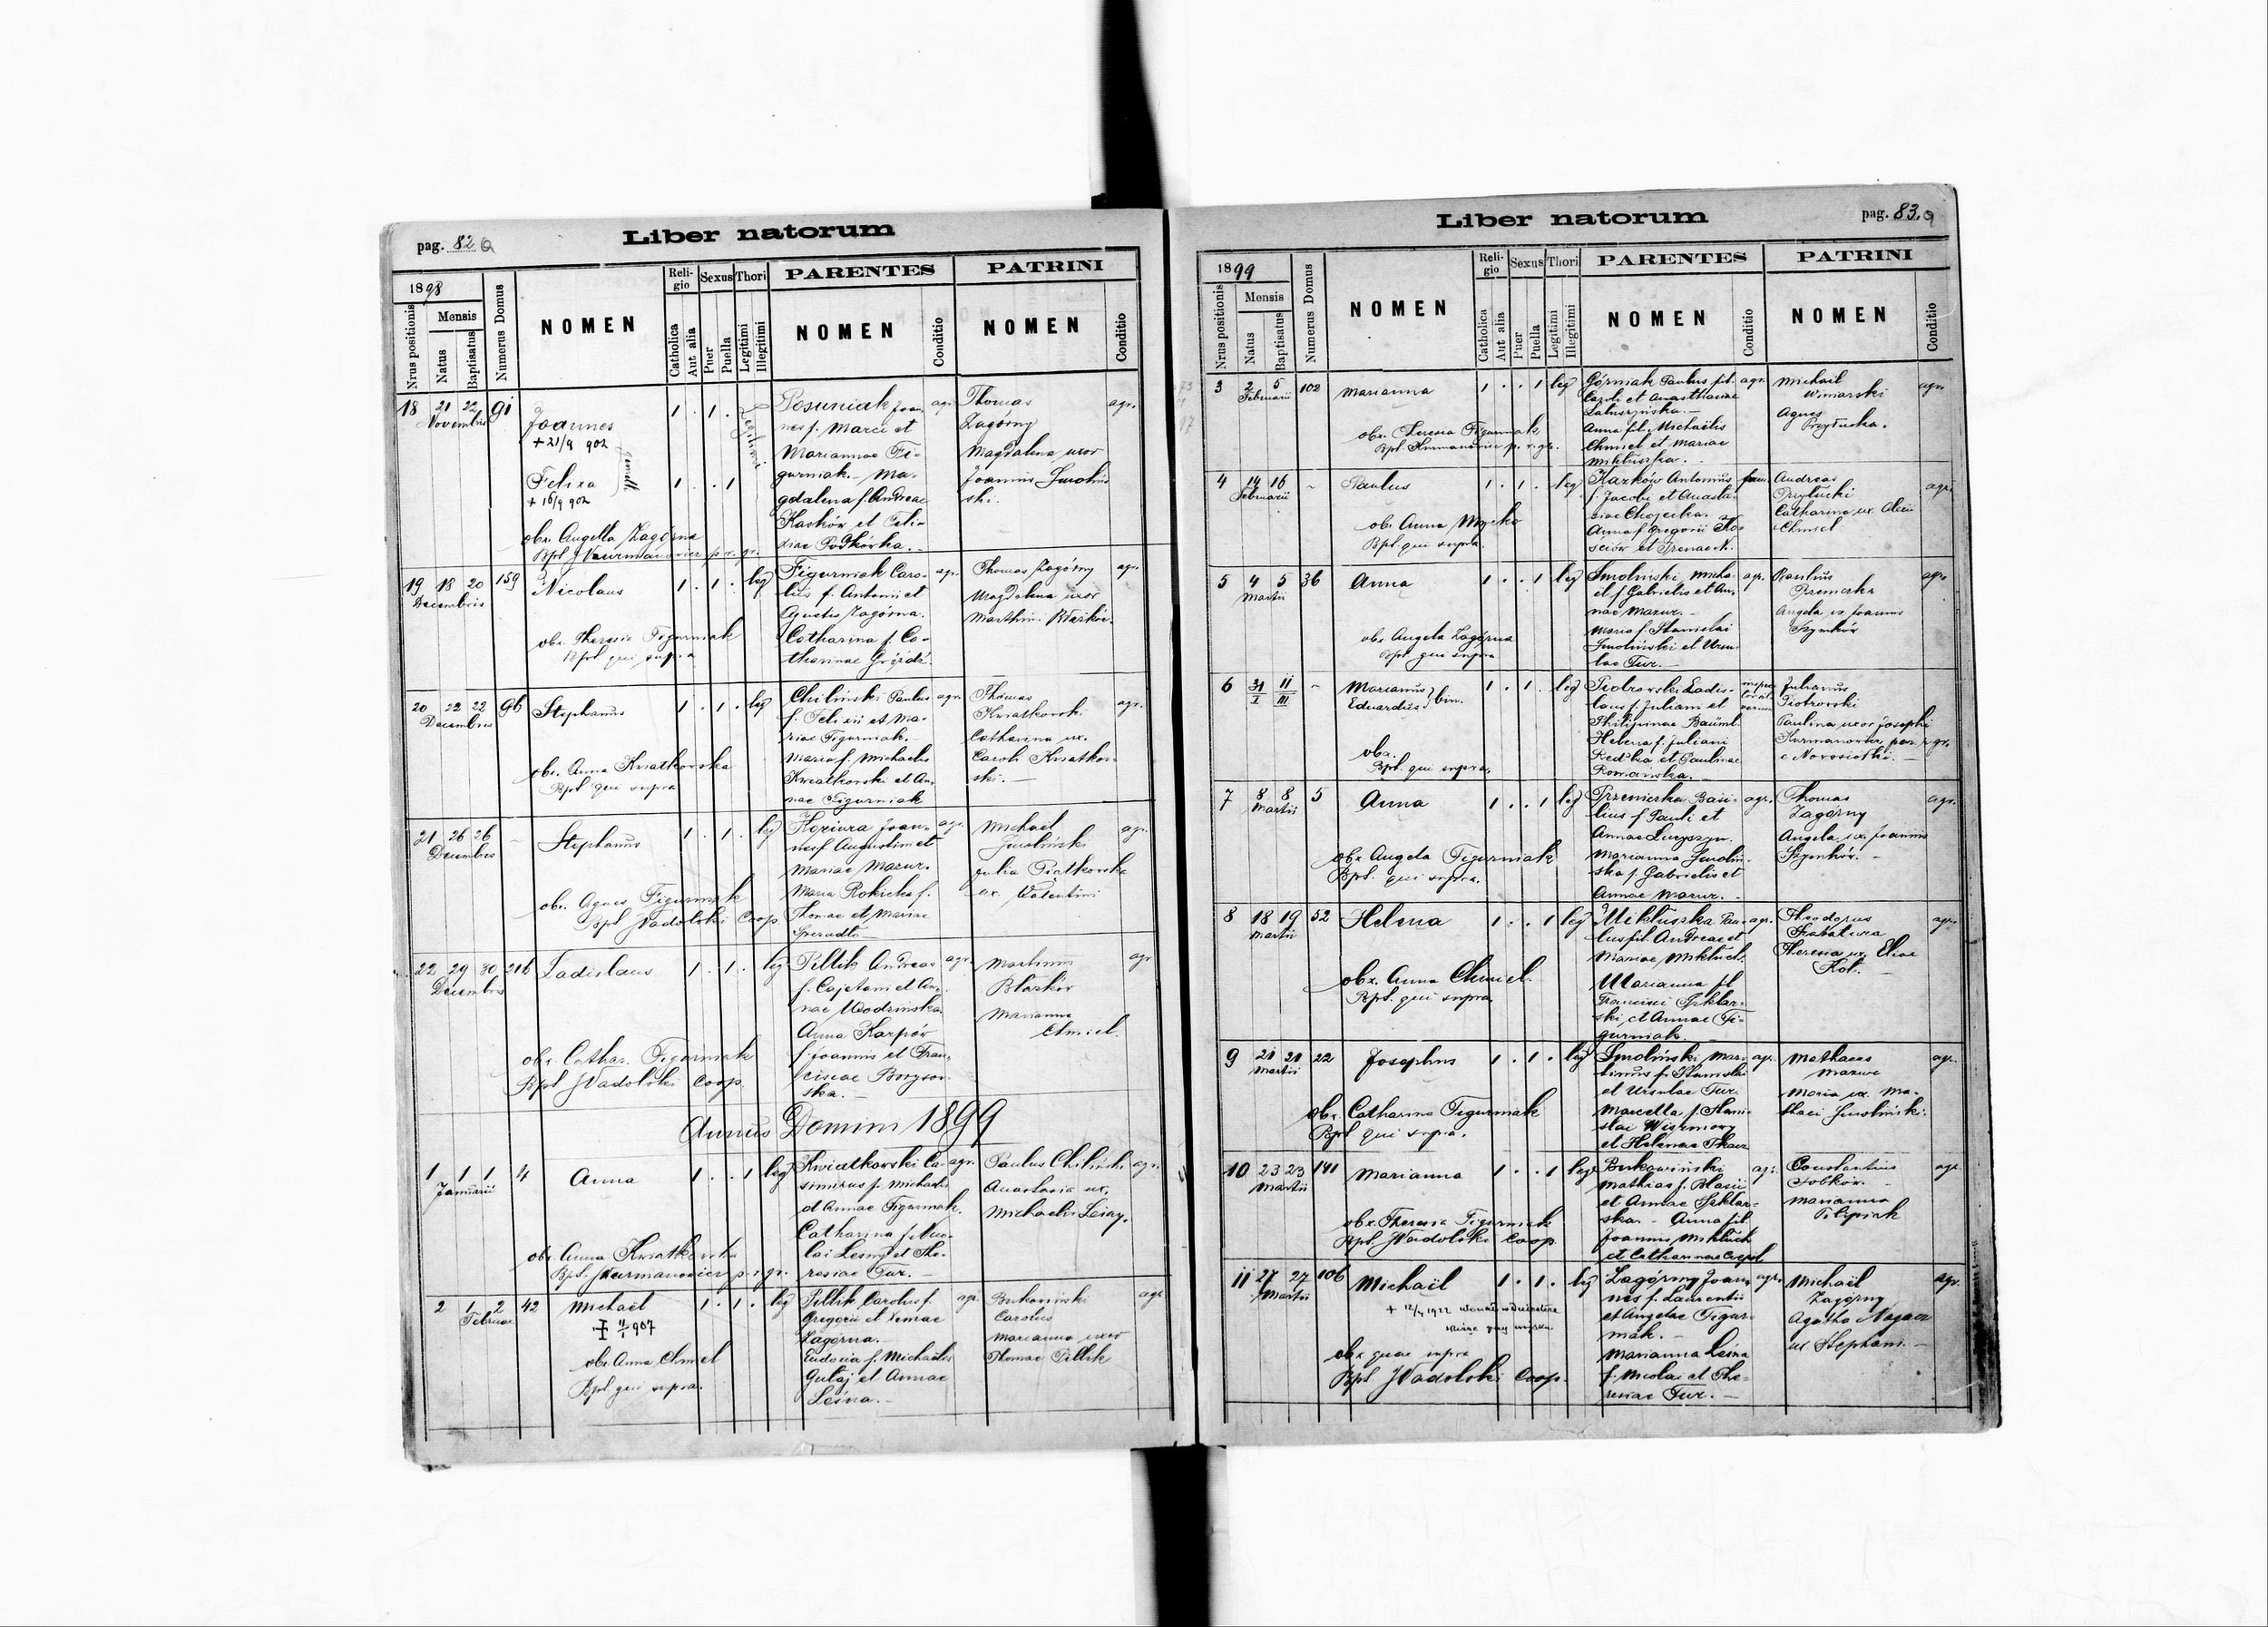 pag. 82
Liber natorum
1898
Nrus positionis
Mensis
Natus
Baptisatus
Numerus Domus
NOMEN
Religio
Catholica
Aut alia
Sexus
Puer
Puella
Thori
Legitimi
Illegitimi
PARENTES
NOMEN
Conditio
PATRINI
NOMEN
Conditio
18 21 22 91
Novembris
Joannes
+ 21/9 902
Felixa
+ 16/9 902
gemelli
obs. Angella Zagórna
Bpt. J Kurmanowicz p. r. gr.
1 . 1 .
1 . . 1
Legitimi
Posuniak Joan-
nes f. Marci et
Mariannae Fi-
gurniak. - Ma-
gdalena f. Andreae
Kaskór et Feli-
xiae Podkórka. -
agr.
Thomas
Zagórny
Magdalena uxor
Joannis Smoliń-
ski. -
agr.
19 18 20 159
Decembris
Nicolaus
obs. Theresia Figurniak
Bpt. qui supra
1 . 1 . leg
Figurniak Caro-
lus f. Antonii et
Agnetis Zagórna.
Catharina f. Ca-
tharinae
agr.
Thomas Zagórny
Magdalena uxor
Marthini Błazków.
agr.
20 22 22 96
Decembris
Stephanus
obs. Anna Kwiatkowska
Bpt. qui supra
1 . 1 . leg
Chiliński Paulus
f. Felixii et Ma-
riae Figurniak. -
Maria f. Michaelis
Kwiatkowski et An-
nae Figurniak
agr.
Thomas
Kwiatkowski
Catharina ux.
Caroli Kwiatkow-
ski. -
agr.
21 26 26 -
Decembris
Stephanus
obs. Agnes Figurniak
Bpt. J Wadolski Coop.
1 . 1 . leg
Koziura Joan-
nes f. Augustini et
Mariae Mazur.
Maria Rokicka f.
Thomae et Mariae
agr.
Michael
Smoliński
Julia Piatkowska
ux. Valentini
agr.
22 29 30 216
Decembris
Ladislaus
obs. Cathar. Figurniak
Bpt. J Wadolski Coop.
1 . 1 . leg
Pillik Andreas
f. Cajetani et An-
nae Wodzińska.
Anna Karpów
f. Joannis et Fran-
ciscae Borysow-
ska. -
agr.
Martinus
Błazków
Marianna
Chmiel
agr
Annus Domini 1899
1 1 1 4
Januarii
Anna
obs. Anna Kwiatkowska
Bpt. J Kurmanowicz p. r. gr.
1 . . 1 leg
Kwiatkowski Ca-
simirus f. Michaelis
et Annae Figurniak.
Catharina f. Nico-
lai Lesny et The-
resiae Tur. -
agr.
Paulus Chiliński
Anastasia ux.
Michaelis Leśny.
agr.
2 1 2 42
Februar
Michaël
907
obs. Anna Chmiel
Bpt. qui supra.
1 . 1 . leg
Pillik Carolus f.
Gregorii et
Zagórna. -
Eudocia f. Michaelis
Gułaj et Annae
Leśna. -
agr.
Bukowiński
Carolus
Marianna uxor
Thomae Pillik
agr
pag. 83.
Liber natorum
1899
Nrus positionis
Mensis
Natus
Baptisatus
Numerus Domus
NOMEN
Religio
Catholica
Aut alia
Sexus
Puer
Puella
Thori
Legitimi
Illegitimi
PARENTES
NOMEN
Conditio
PATRINI
NOMEN
Conditio
3 2 5 102
Februarii
Marianna
obs. Theresia Figurniak
Bpt. Kurmanowicz p. r. gr.
1 . . 1 leg
Górniak Paulus fil.
Caroli et Anasthasiae
Labuszyńska. -
Anna fil. Michaëlis
Chmiel et Mariae
Mikluszka. -
agr.
Michaël
Winiarski
Agnes
Przyłucka.
agr.
4 14 16 -
Februarii
Paulus
obs. Anna
Bpt. qui supra.
1 . 1 . leg
Karków Antonius
f. Jacobi et Anasta-
siae Chojecka.
Anna f. Gregorii Ko-
ściów et Irenae N.
Andreas
Przyłucki
Catharina ux. Alexii
Chmiel
agr.
5 4 5 36
Martii
Anna
obs. Angela Zagórna
Bpt. qui supra
1 . . 1 leg
Smoliński Micha-
el f. Gabrielis et An-
nae Mazur. -
Maria f. Stanislai
Smoliński et Ursu-
lae Tur. -
agr.
Paulus
Pszeniczka
Angela ux. Joannis
Szynków
agr.
6 31/I 11/III -
Marianus
Eduardus } bin.
obs.
Bpt. qui supra.
1 . 1 . leg
Piotrowski Ladis-
laus f. Juliani et
Philipinae Bauml.
Helena f. Juliani
Redlka et Paulinae
Romańska. -
Julianus
Piotrowski
Paulina uxor Josephi
Kurmanowicz, par. r. gr.
e Nowosiołki. -
7 8 8 5
Martii
Anna
obs. Angela Figurniak
Bpt. qui supra.
1 . . 1 leg
Przeniczka Basi-
lius f. Pauli et
Annae Łuczyszyn.
Marianna Smoliń-
ska f. Gabrielis et
Annae Mazur. -
agr.
Thomas
Zagórny
Angela ux. Joannis
Szynków. -
agr.
8 18 19 52
Martii
Helena
obs. Anna Chmiel.
Bpt. qui supra
1 . . 1 leg
Mikluszka Pau-
lus fil. Andreae et
Mariae Mikluch.
Marianna fil
Francisci Szklar-
ski, et Annae Fi-
gurniak.
agr.
Theodorus
Theresia ux. Eliae
Kot. -
agr.
9 21 21 22
Martii
Josephus
obs. Catharina Figurniak
Bpt. qui supra.
1 . 1 . leg
Smoliński Mar-
tinus f. Stanislai
et Ursulae Tur.
Marcella f. Stani-
slai Wiszniowy
et Helenae Tkacz
agr.
Mathaeus
Mazur
Maria ux. Ma-
thaei Smoliński.
agr.
10 23 23 141
Martii
Marianna
obs. Theresia Figurniak
Bpt. J Wadolski Coop.
1 . . 1 leg
Bukowiński
Mathias f. Blasii
et Annae Szklar-
ska - Anna fil.
Joannis Mikluch
et Catharinae
agr.
Constantius
Sobków. -
Marianna
Filipiak
agr.
11 27 27 106
Martii
Michaël
+ 12/4 1922
obs. quae supra
Bpt. J Wadolski Coop.
1 . 1 . leg
Zagórny Joan-
nes f. Laurentii
et Angelae Figur-
niak. -
Marianna Leśna
f. Nicolai et The-
resiae Tur. -
agr.
Michaël
Zagórny
Agatha
ux. Stephani. -
agr.